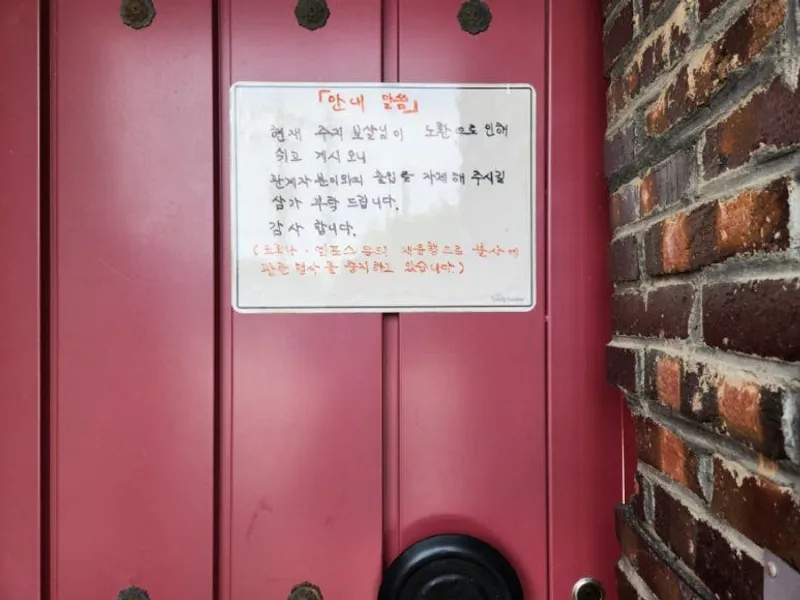 「안내 말씀」
현재 주지 보살님이 노환으로 인해
쉬고 계시오니
관계자 분이외의 출입을 자제해 주시길
삼가 부탁 드립니다.
감사 합니다.
(코로나 · 엠폭스 등의 재유행으로 불사에
관한 행사를 중지하고 있습니다.)